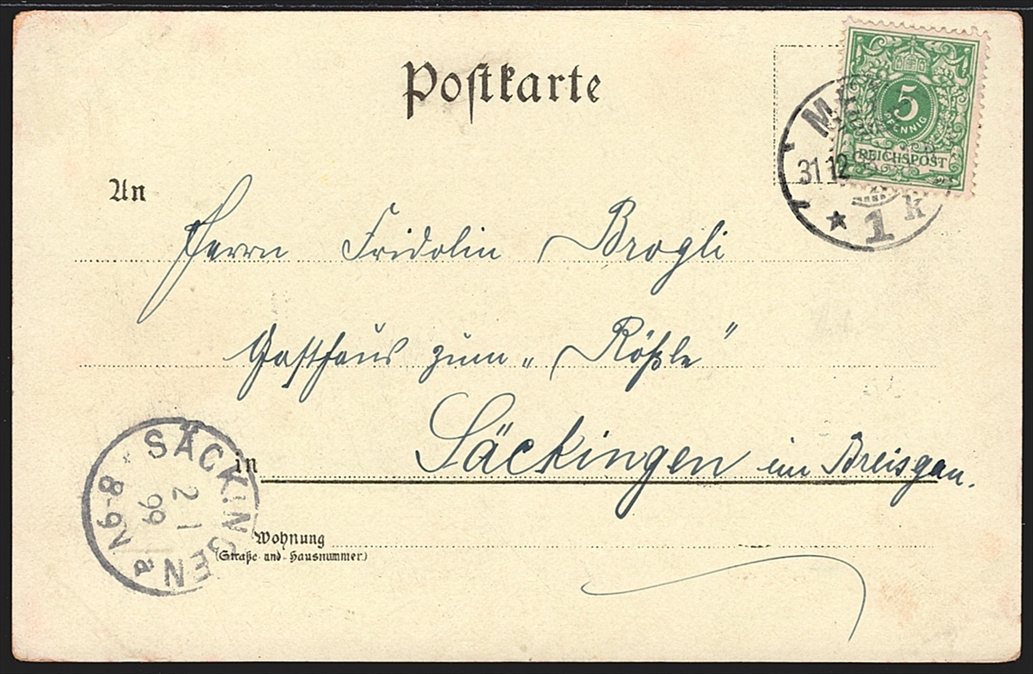 Postkarte
5
PFENNIG
REICHSPOST
31 12
1 k
An
Herrn Fridolin Brogli
Gasthaus zum „Rößle“
in Säckingen im Breisgau.
SÄCKINGEN
2 1
99
8-9V
a
Wohnung
(Straße und Hausnummer)